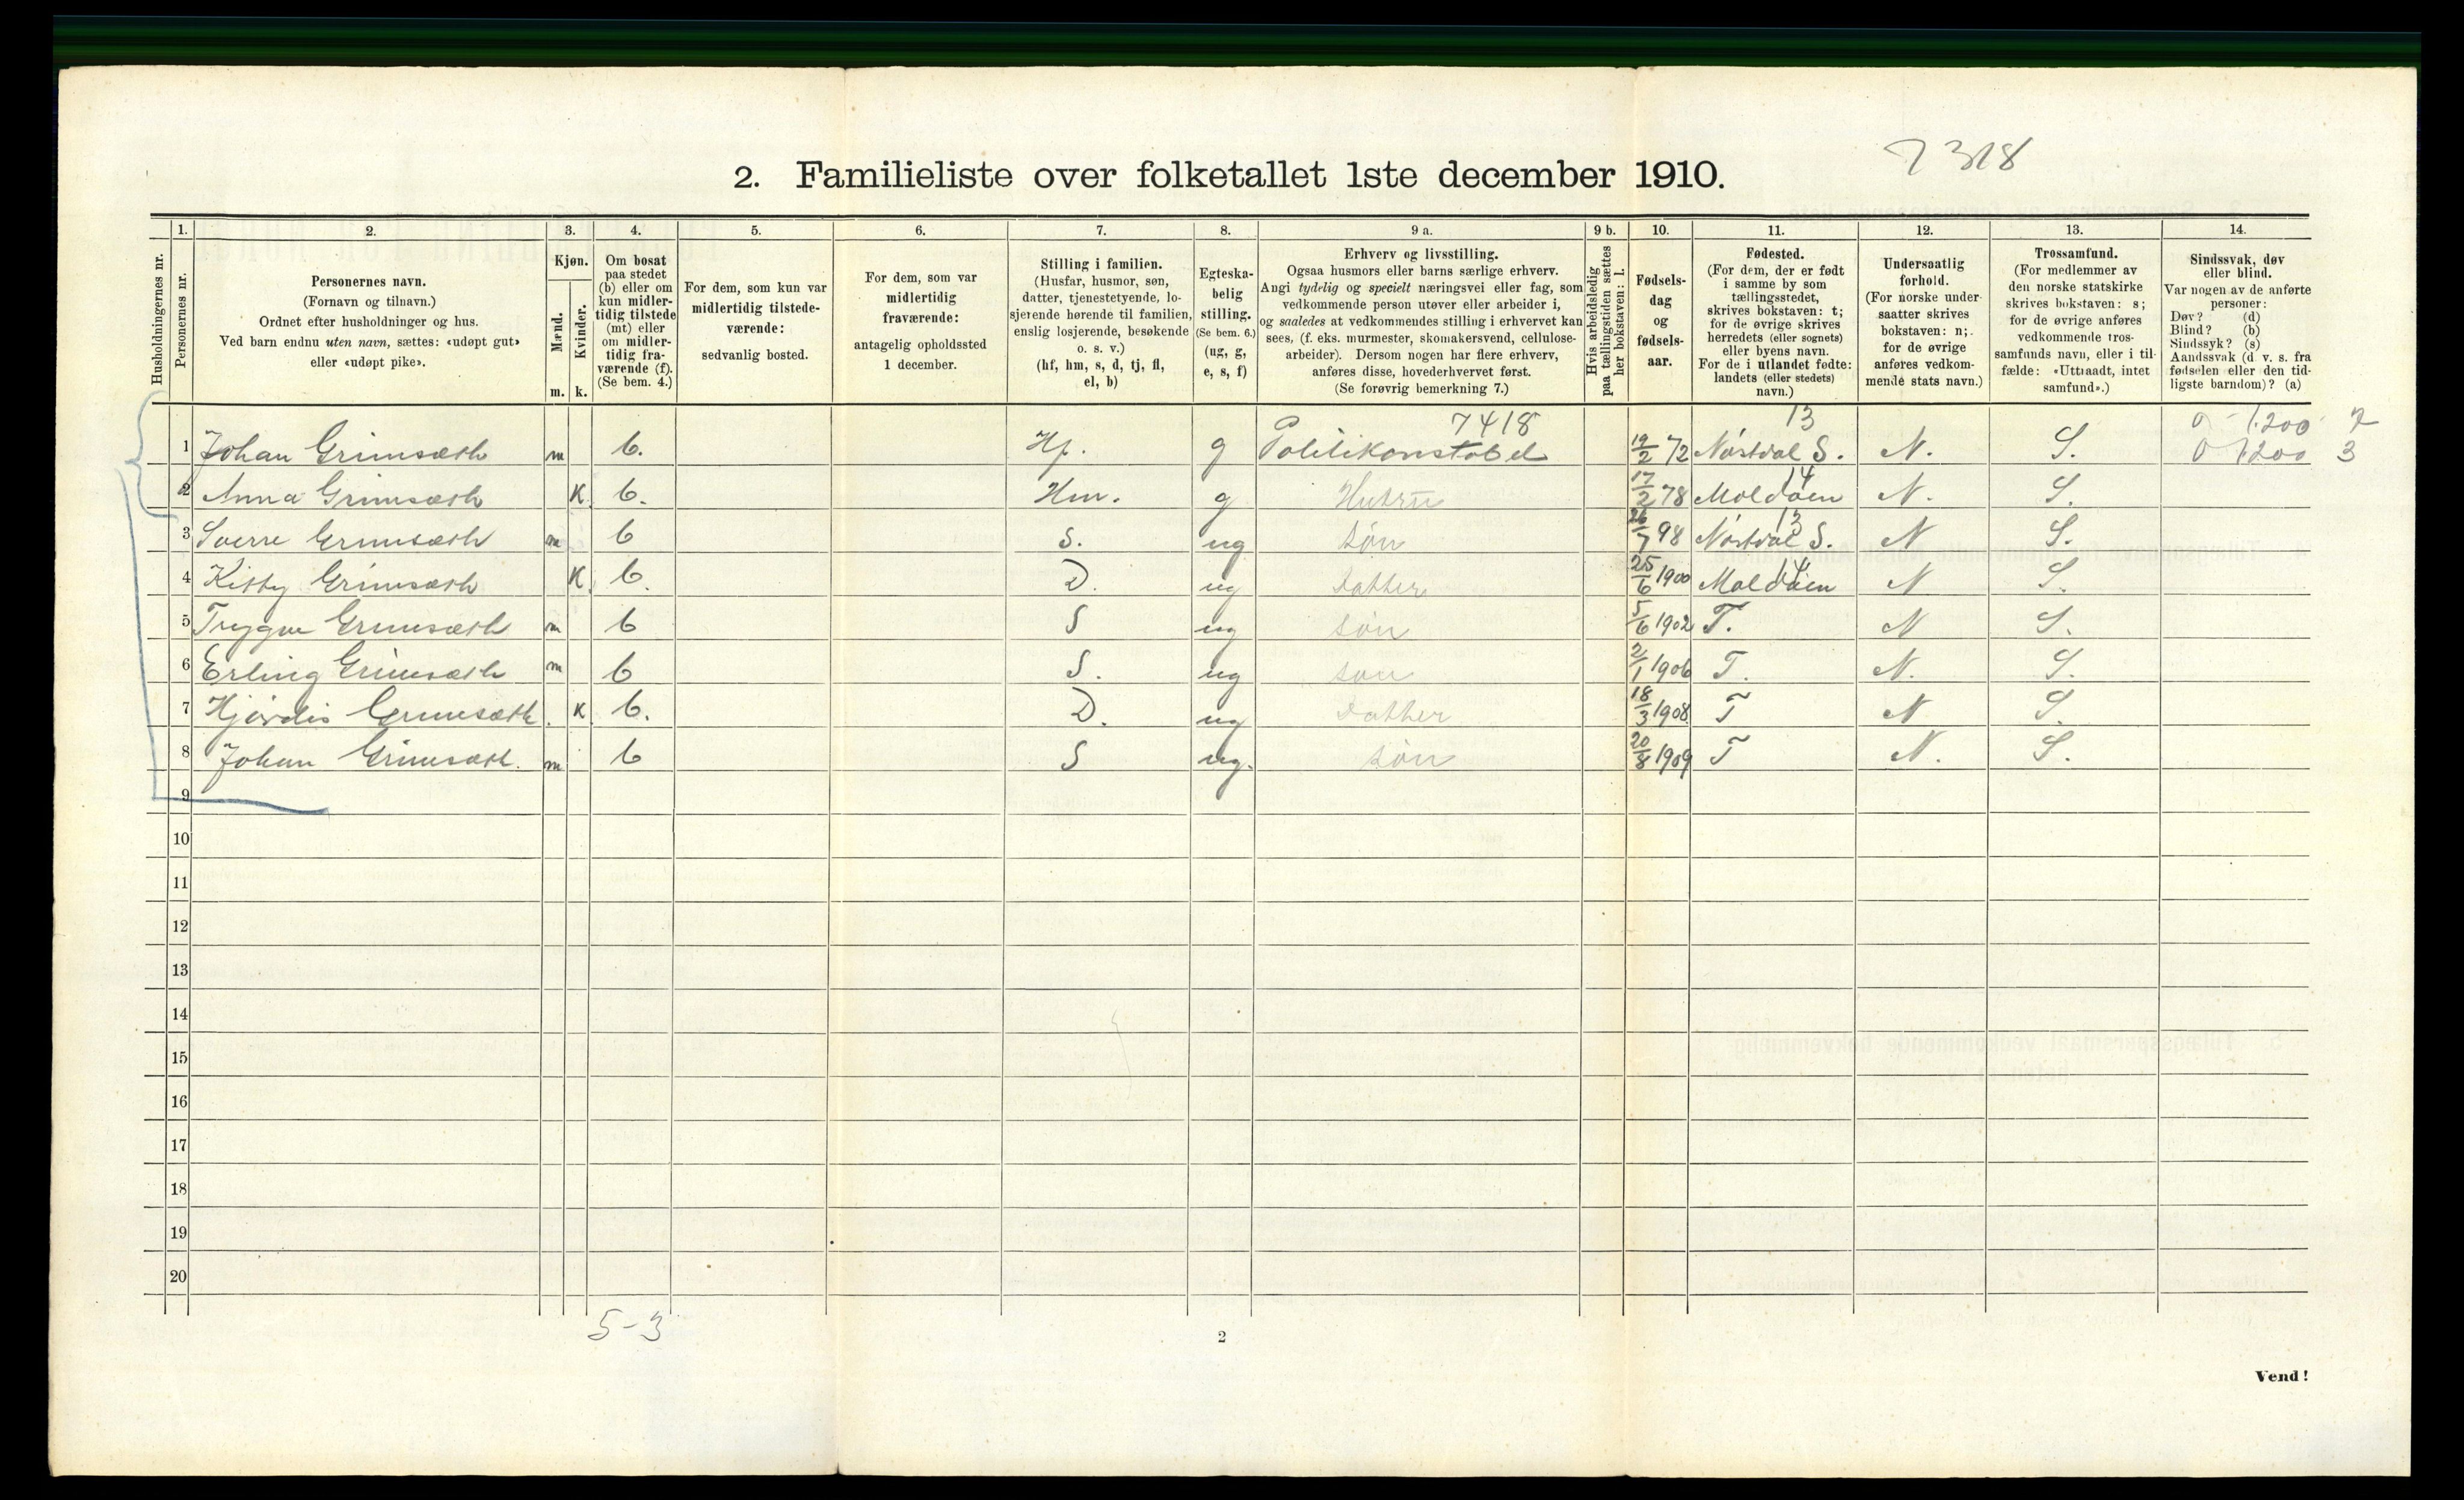 7318
2. Familieliste over folketallet 1ste december 1910.
Husholdningernes nr.
1. Personernes nr.
2. Personernes navn. (Fornavn og tilnavn.) Ordnet efter husholdninger og hus. Ved barn endnu uten navn, sættes: «udøpt gut» eller «udøpt pike».
3. Kjøn. Mænd. m. Kvinder. k.
4. Om bosat paa stedet (b) eller om kun midlertidig tilstede (mt) eller om midlertidig fraværende (f). (Se bem. 4.)
5. For dem, som kun var midlertidig tilstedeværende: sedvanlig bosted.
6. For dem, som var midlertidig fraværende: antagelig opholdssted 1 december.
7. Stilling i familien. (Husfar, husmor, søn, datter, tjenestetyende, losjerende hørende til familien, enslig losjerende, besøkende o. s. v.) (hf, hm, s, d, tj, fl, el, b)
8. Egteskabelig stilling. (Se bem. 6.) (ug, g, e, s, f)
9 a. Erhverv og livsstilling. Ogsaa husmors eller barns særlige erhverv. Angi tydelig og specielt næringsvei eller fag, som vedkommende person utøver eller arbeider i, og saaledes at vedkommendes stilling i erhvervet kan sees, (f. eks. murmester, skomakersvend, cellulosearbeider). Dersom nogen har flere erhverv, anføres disse, hovederhvervet først. (Se forøvrig bemerkning 7.)
9 b. Hvis arbeidsledig paa tællingstiden sættes her bokstaven: l.
10. Fødselsdag og fødselsaar.
11. Fødested. (For dem, der er født i samme by som tællingsstedet, skrives bokstaven: t; for de øvrige skrives herredets (eller sognets) eller byens navn. For de i utlandet fødte: landets (eller stedets) navn.)
12. Undersaatlig forhold. (For norske undersaatter skrives bokstaven: n; for de øvrige anføres vedkommende stats navn.)
13. Trossamfund. (For medlemmer av den norske statskirke skrives bokstaven: s; for de øvrige anføres vedkommende trossamfunds navn, eller i tilfælde: «Uttraadt, intet samfund».)
14. Sindssvak, døv eller blind. Var nogen av de anførte personer: Døv? (d) Blind? (b) Sindssyk? (s) Aandssvak (d. v. s. fra fødselen eller den tidligste barndom)? (a)
7418 13 0 - 1200 2
1 Johan Grimsæth m b. Hf. g Politikonstabel 19/2 72 Nøstdal S. N. S. 0 1200 3
14
2 Anna Grimsæth K b. Hm. g Hustru 17/2 78 Moldøen N. S.
13
3 Sverre Grimsæth m b S. ug søn 26/7 98 Nøstdal S. N S.
14
4 Kitty Grimsæth K b. D. ug datter 25/6 1900 Moldøen N S.
5 Trygve Grimsæth m b S ug søn 5/6 1902 T. N S.
6 Erling Grimsæth m b S. ug søn 2/1 1906 T. N. S.
7 Hjørdis Grimsæth. K b. D. ug datter 18/3 1908 T N S.
8 Johan Grimsæth. m b S ug. søn 20/8 1909 T N. S.
9
10
11
12
13
14
15
16
17
18
19
20
5-3
2
Vend!